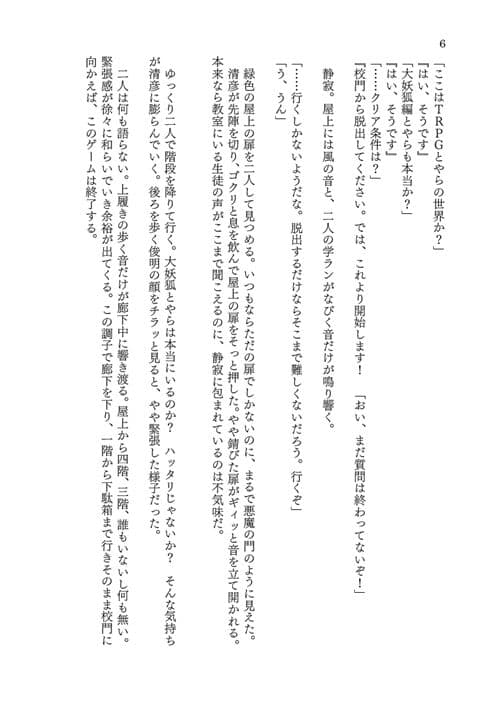 6
「ここはTRPGとやらの世界か？」
『はい、そうです』
「大妖狐編とやらも本当か？」
『はい、そうです』
「……クリア条件は？」
『校門から脱出してください。では、これより開始します！　「おい、まだ質問は終わってないぞ！」
静寂。屋上には風の音と、二人の学ランがなびく音だけが鳴り響く。
「……行くしかないようだな。脱出するだけならそこまで難しくないだろう。行くぞ」
「う、うん」
緑色の屋上の扉を二人して見つめる。いつもならただの扉でしかないのに、まるで悪魔の門のように見えた。
清彦が先陣を切り、ゴクリと息を飲んで屋上の扉をそっと押した。やや錆びた扉がギィッと音を立て開かれる。
本来なら教室にいる生徒の声がここまで聞こえるのに、静寂に包まれているのは不気味だ。
ゆっくり二人で階段を降りて行く。大妖狐とやらは本当にいるのか？　ハッタリじゃないか？　そんな気持ち
が清彦に膨らんでいく。後ろを歩く俊明の顔をチラッと見ると、やや緊張した様子だった。
二人は何も語らない。上履きの歩く音だけが廊下中に響き渡る。屋上から四階、三階、誰もいないし何も無い。
緊張感が徐々に和らいでいき余裕が出てくる。この調子で廊下を下り、一階から下駄箱まで行きそのまま校門に
向かえば、このゲームは終了する。